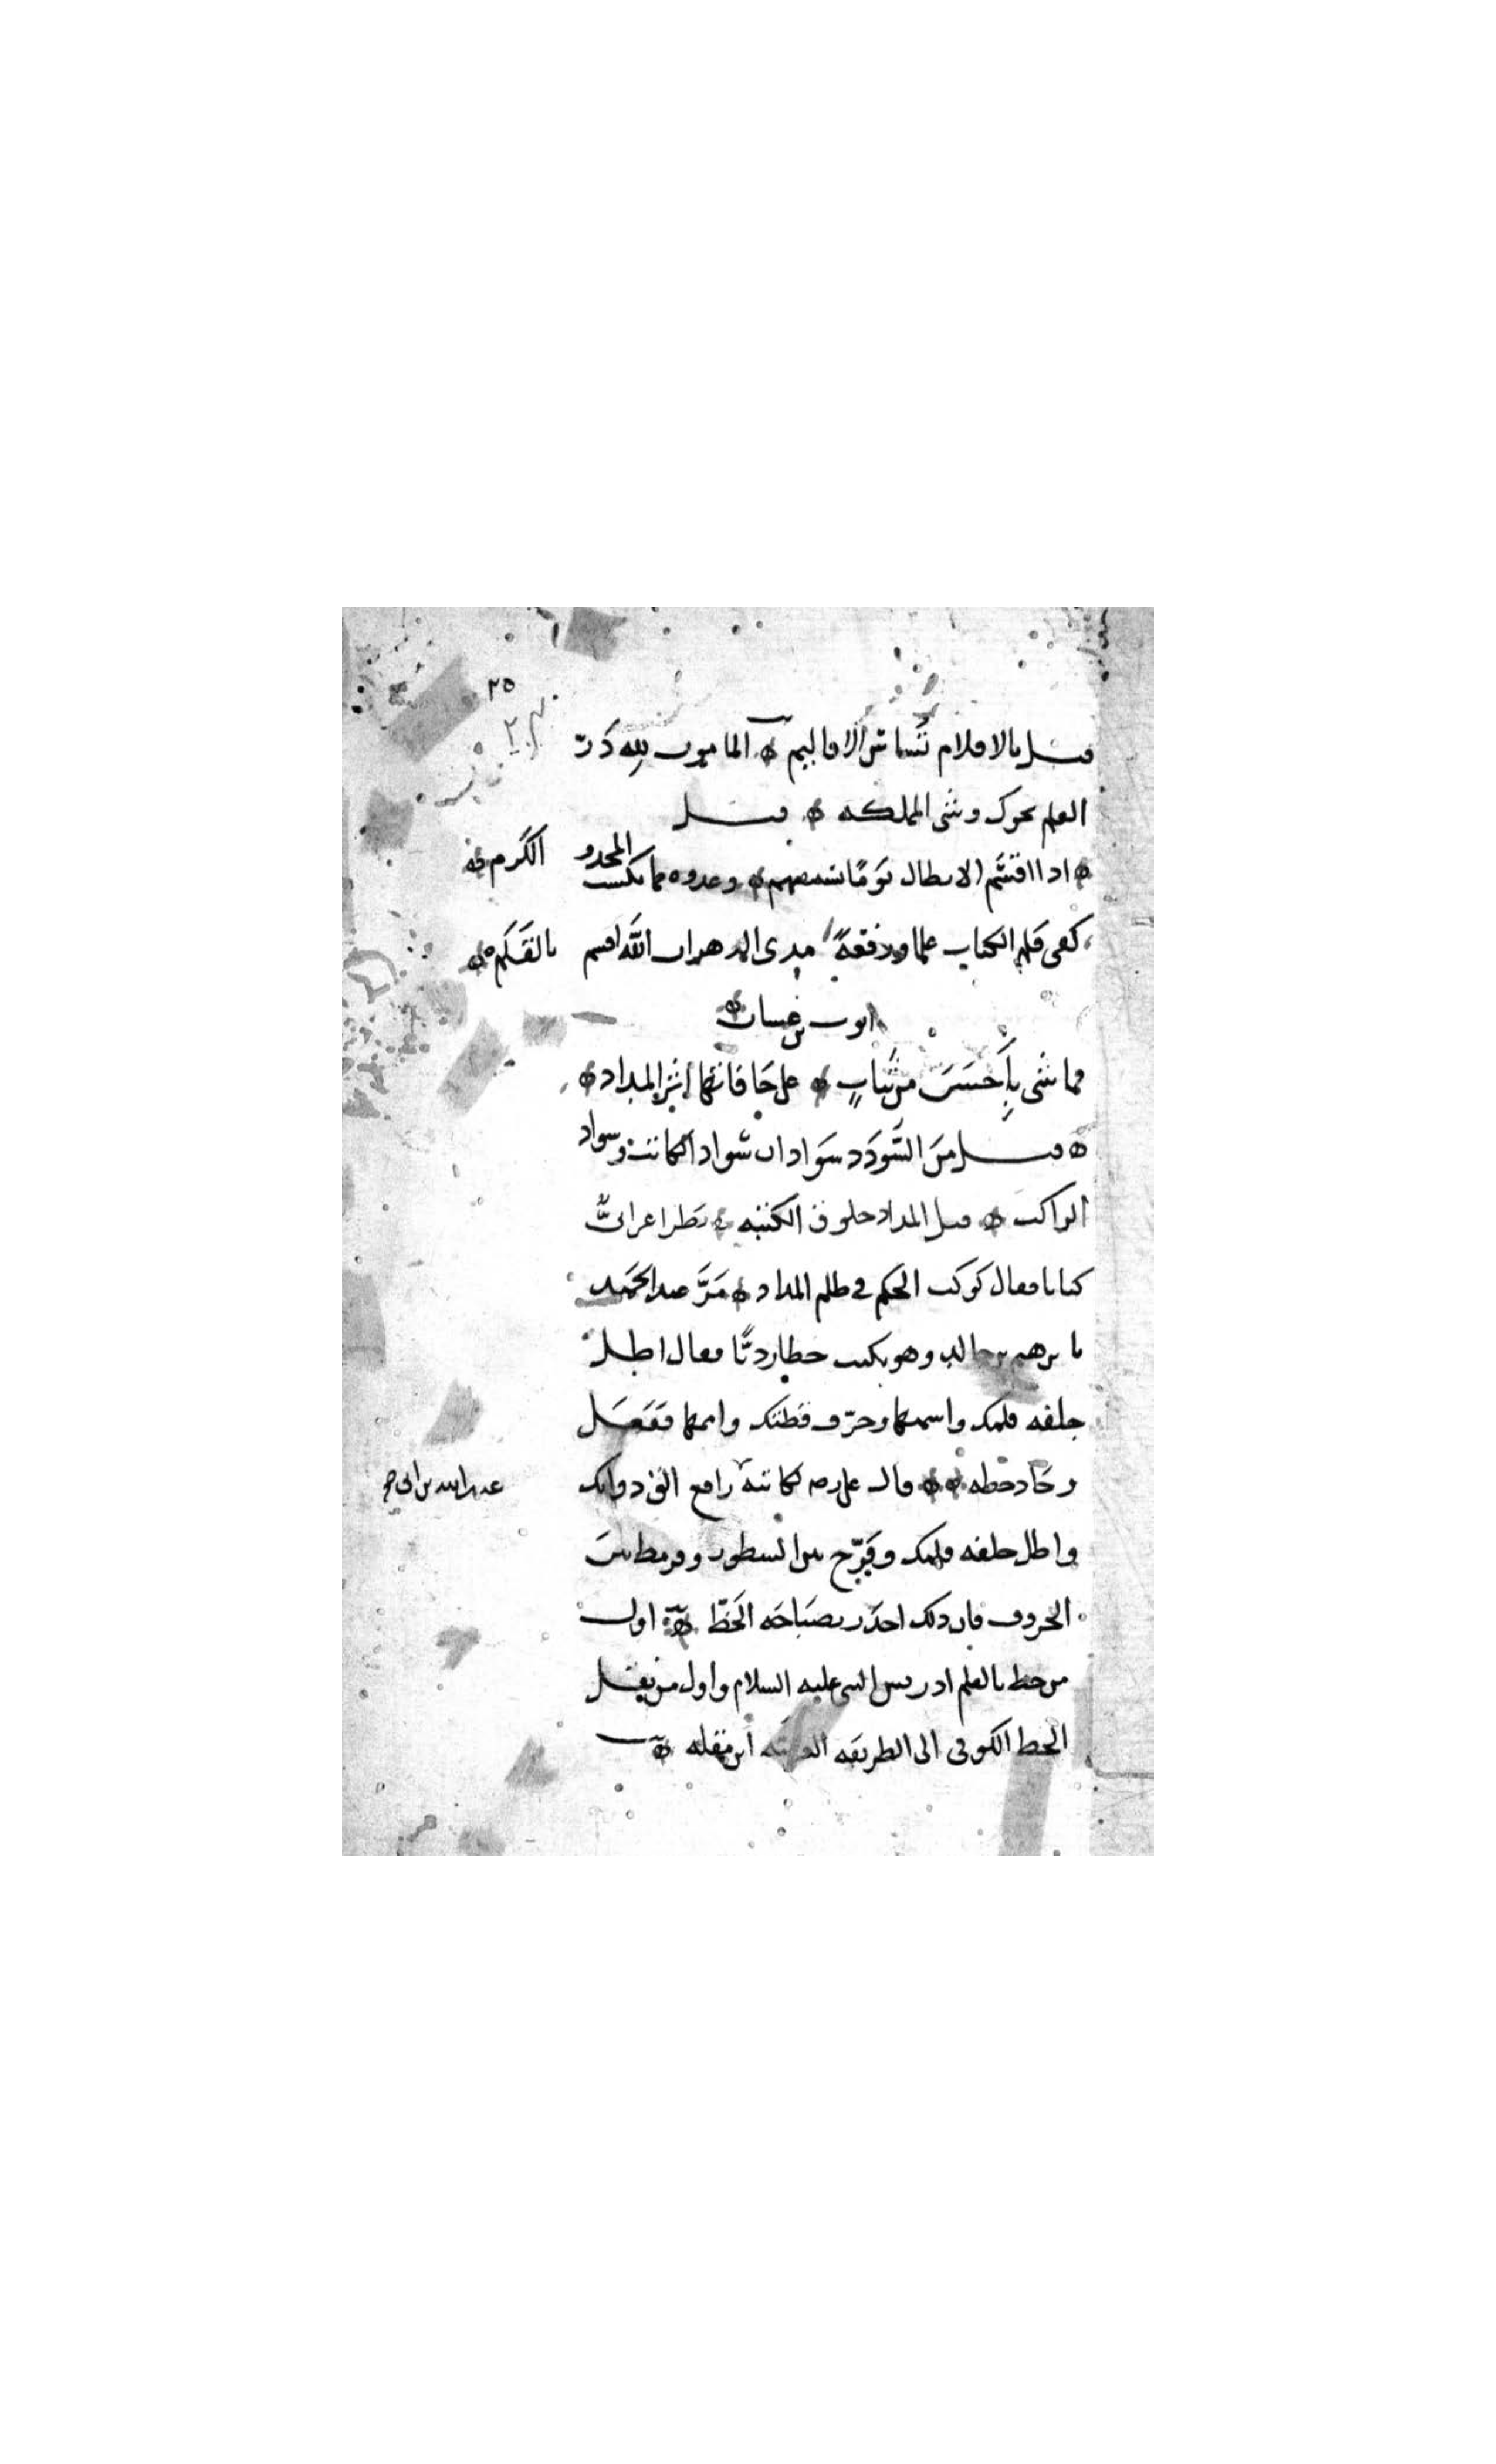 ٢٥
قيل بالاقلام تساس الاقاليم ه المامون لله درّ
القلم يحوك وشى المملكه ه قيل
ه اذا اقسَم الابطال يَومًا بسيفهم ه وعدوه مما يكسب المجد والكَرم ه
كفى قلم الكتاب عزا ورفعةً مدى الدهر ان الله اقسم بالقَلَم ه
ايوب بن غسان ه
فما شى بِأَحسَنَ من ثيابٍ ه على حَافاتها اثر المداد ه
ه قيل مِنَ السُّودَد سَوادان سواد الكاتب وسواد
الراكب ه قيل المداد خلوق الكتبه ه نظر اعرابىٌّ
كتابا فقال كوكب الحكم في ظلم المداد ه مَرَّ عبد الحَميد
بابرهيم بن خالد وهو يكتب خطا رديًّا فقال اطل
جلفه قلمك واسمنها وحرّف قطتك وايمنها فَفَعَل
وجَاد خطه ه ه قال على رضه لكاتبه رافع الق دواتك
عبيد الله بن ابى
واطل جلفه قلمك وفَرّج بين السطور وقرمط بين
الحروف فان ذلك اجدَر بصَبَاحَه الخَطّ ه اول
من خط بالقلم ادريس النبى عليه السلام واول من نقل
الخط الكوفى الى الطريقه العربيّه ابن مقله ه